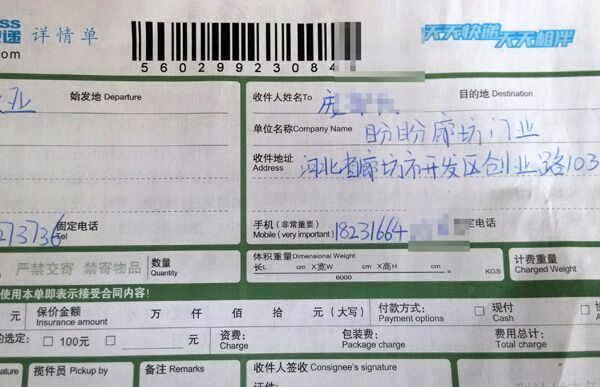 ss
递 详情单
.com
天天快递 天天相伴
560299230 84
业 始发地 Departure
收件人姓名To 庞 目的地 Destination
单位名称Company Name 盼盼廊坊门业
收件地址
Address 河北省廊坊市开发区创业路103
273736 固定电话
Tel
手机(非常重要)
Mobile (very important) 18231664 固定电话
严禁交寄 禁寄物品
数量
Quantity
体积重量 Dimensional Weight
长L cm X宽W cm X高H cm
6000
KGS
计费重量
Charged Weight
使用本单即表示接受合同内容!
保价金额
Insurance amount 万 仟 佰 拾 元(大写)
付款方式:
Payment options
现付
Cash
的选定: 100元
资费:
Charge
包装费:
Package charge
费用总计:
Total charge
揽件员 Pickup by
备注 Remarks
收件人签收 Consignee's signature
证件: